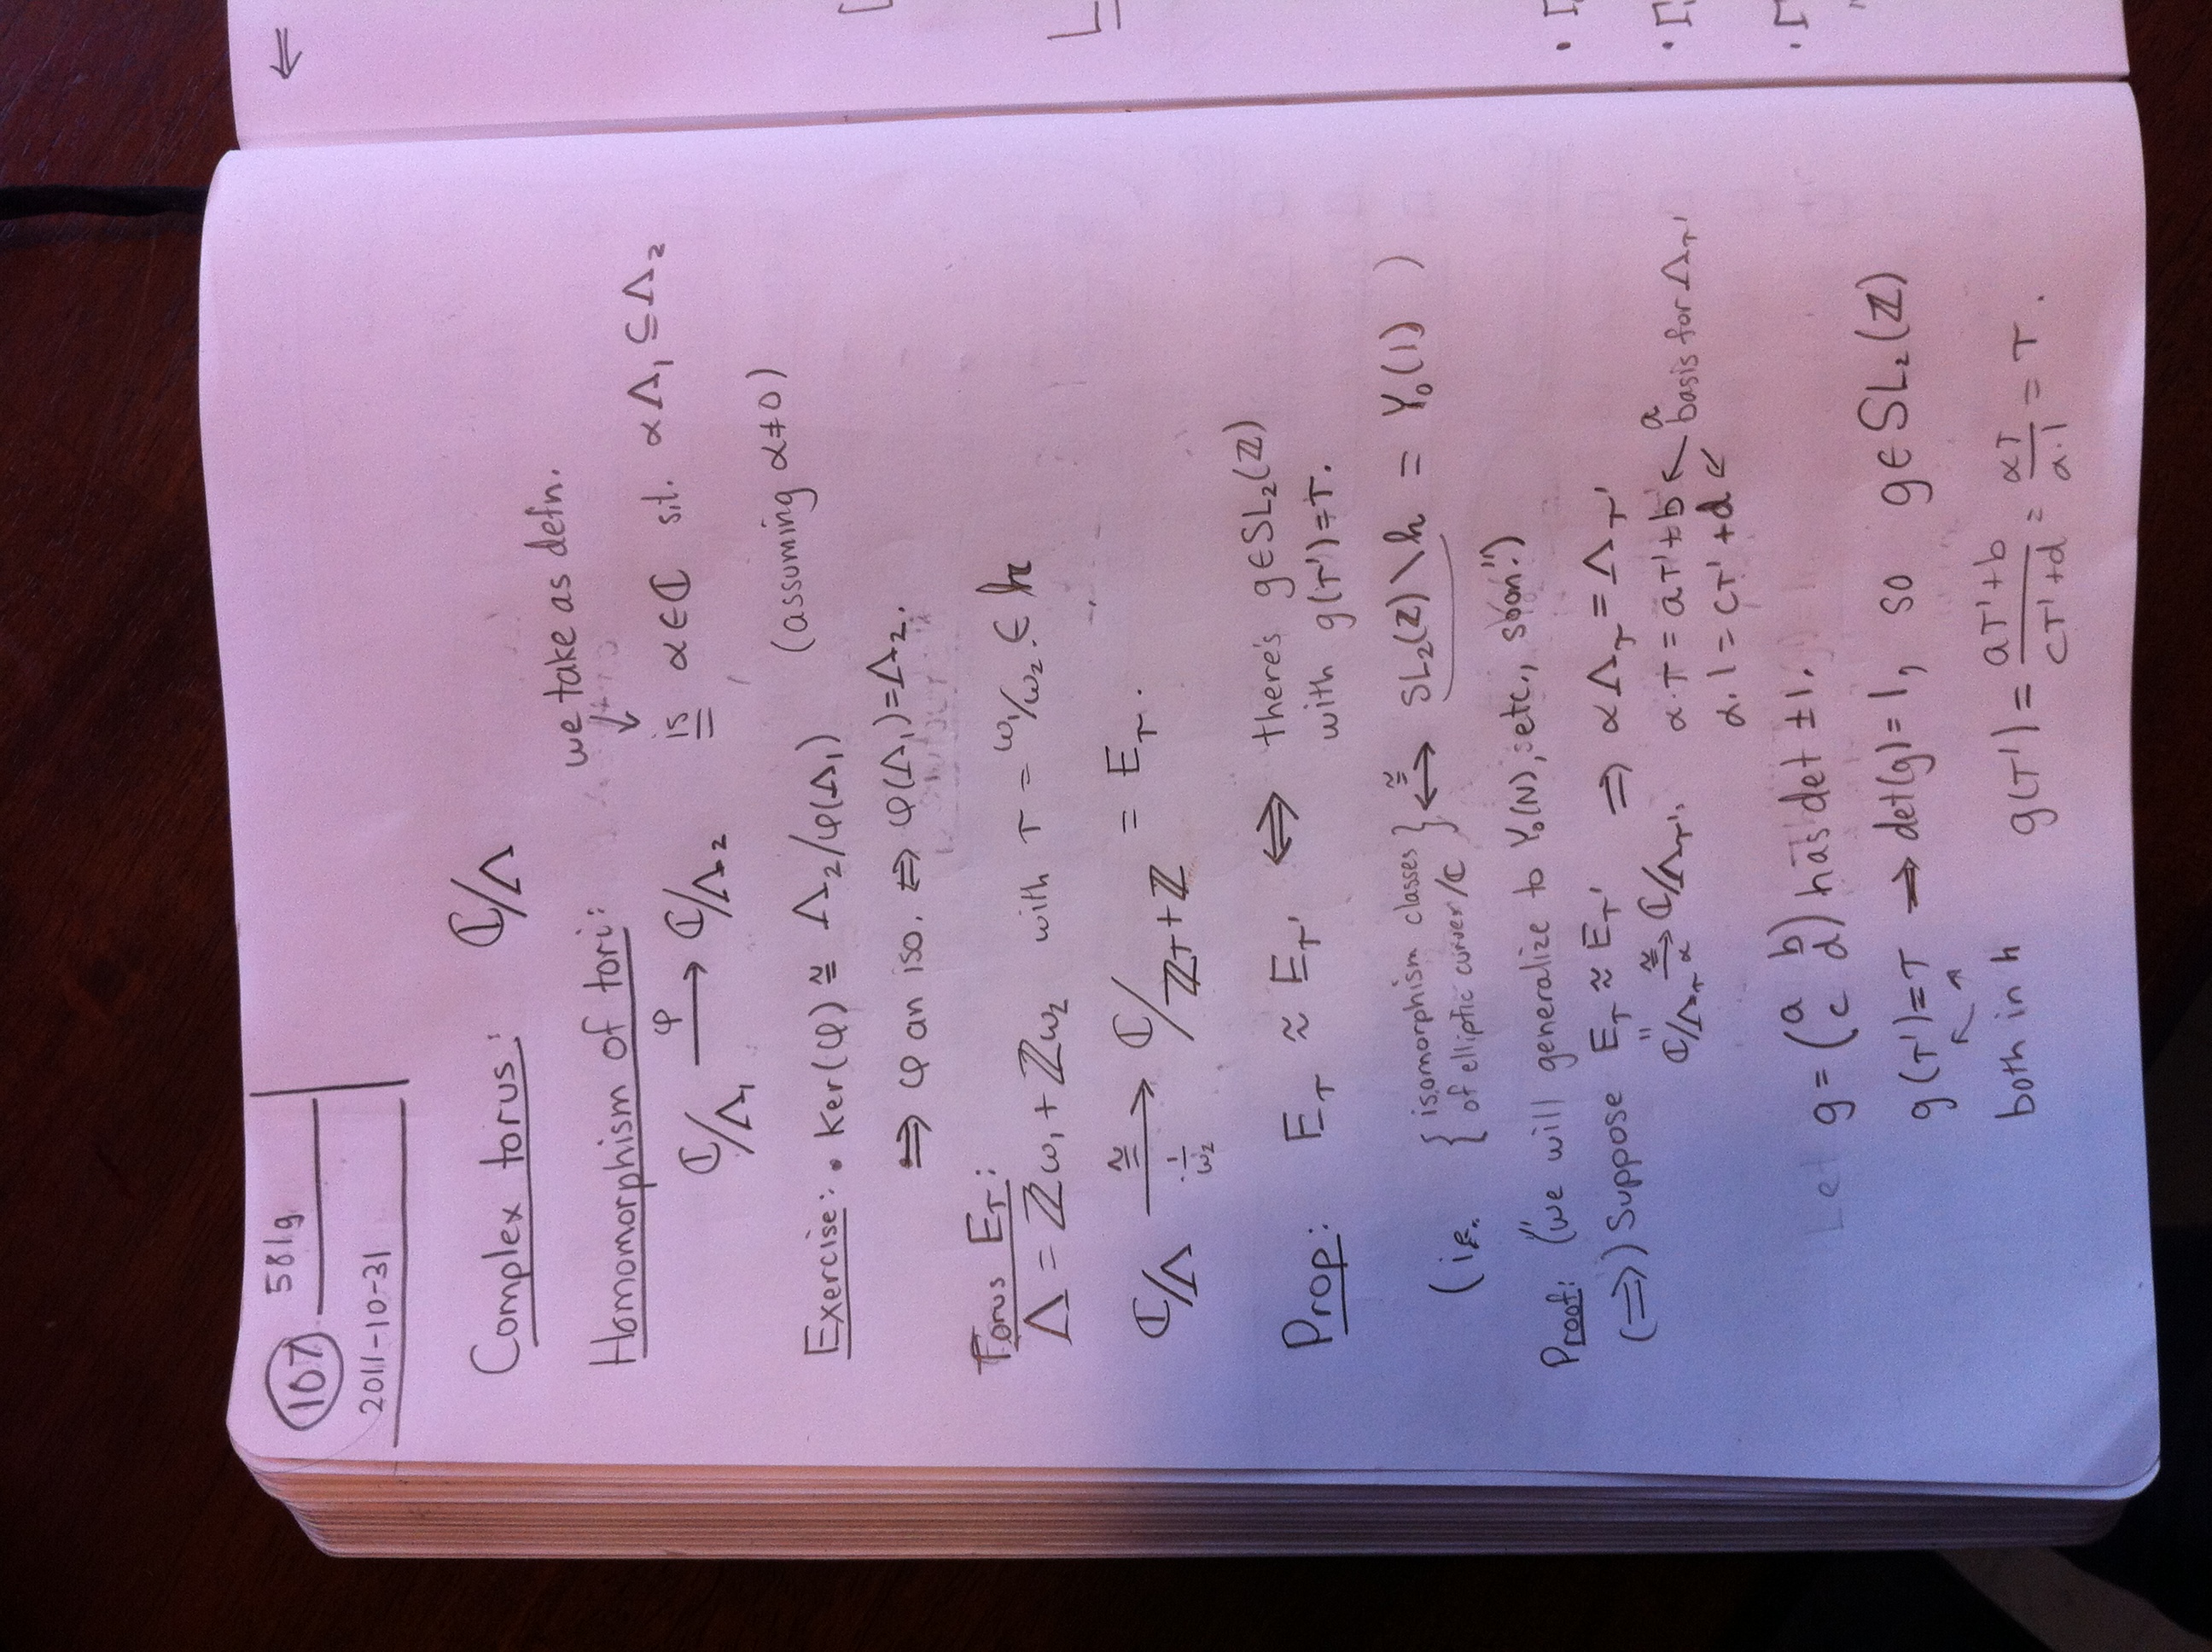 107 581g
2011-10-31
Complex torus: ℂ/Λ
we take as defn.
Homomorphism of tori: ↓
ℂ/Λ₁ —φ→ ℂ/Λ₂ is α∈ℂ s.t. αΛ₁⊆Λ₂
(assuming α≠0)
Exercise: • Ker(φ) ≅ Λ₂/φ(Λ₁)
⇒ φ an iso. ⇔ φ(Λ₁)=Λ₂.
Torus E_τ:
Λ = ℤω₁+ℤω₂ with τ = ω₁/ω₂ ∈ h
ℂ/Λ —≅→ ℂ/ℤτ+ℤ = E_τ.
·1/ω₂
Prop: E_τ ≈ E_τ' ⇔ there's g∈SL₂(ℤ)
with g(τ')=τ.
(ie. {isomorphism classes of elliptic curves/ℂ} ≅↔ SL₂(ℤ)\h = Y₀(1) )
Proof: ("we will generalize to Y₀(N), etc., soon.")
(⇒) Suppose E_τ ≈ E_τ' ⇒ αΛ_τ = Λ_τ'
" ℂ/Λ_τ —≅→ ℂ/Λ_τ'. α·τ = aτ'+b ↖ a basis for Λ_τ'
α α·1 = cτ'+d ↙
Let g = (a b
c d) has det ±1.
g(τ')=τ → det(g)=1, so g∈SL₂(ℤ)
↖ ↗
both in h g(τ') = (aτ'+b)/(cτ'+d) = ατ/α·1 = τ.